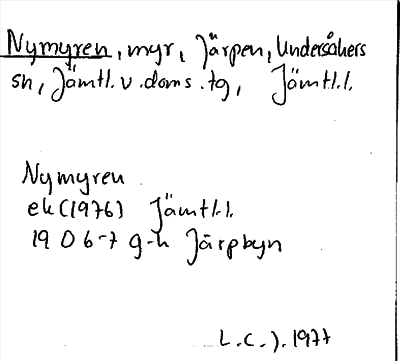 Nymyren, myr, Järpen, Undersåkers
sn, Jämtl. v. doms. tg, Jämtl.l.
Nymyren
ek (1976) Jämtl.l.
19 D 6-7 g-h Järpbyn
L.C.J. 1977